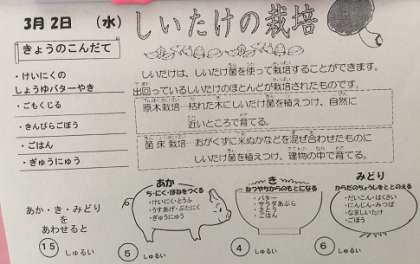 3月2日 （水）
しいたけの栽培
きょうのこんだて
・けいにくの
しょうゆバターやき
・ごもくじる
・きんぴらごぼう
・ごはん
・ぎゅうにゅう
しいたけは、しいたけ菌を使って栽培することができます。
出回っているしいたけのほとんどが栽培されたものです。
原木栽培…枯れた木にしいたけ菌を植えつけ、自然に
近いところで育てる。
菌床栽培…おがくずに米ぬかなどを混ぜ合わせたものに
しいたけ菌を植えつけ、建物の中で育てる。
あか・き・みどり
を
あわせると
15 しゅるい
あか
ち・にく・ほねをつくる
・けいにく・とうふ
・うすあげ・ぶたにく
・ぎゅうにゅう
5 しゅるい
き
ねつやちからのもとになる
・バター
・サラダあぶら
・さとう
・ごはん
4 しゅるい
みどり
からだのちょうしをととのえる
・だいこん・はくさい
・にんじん・みつば
・なましいたけ
・ごぼう
6 しゅるい